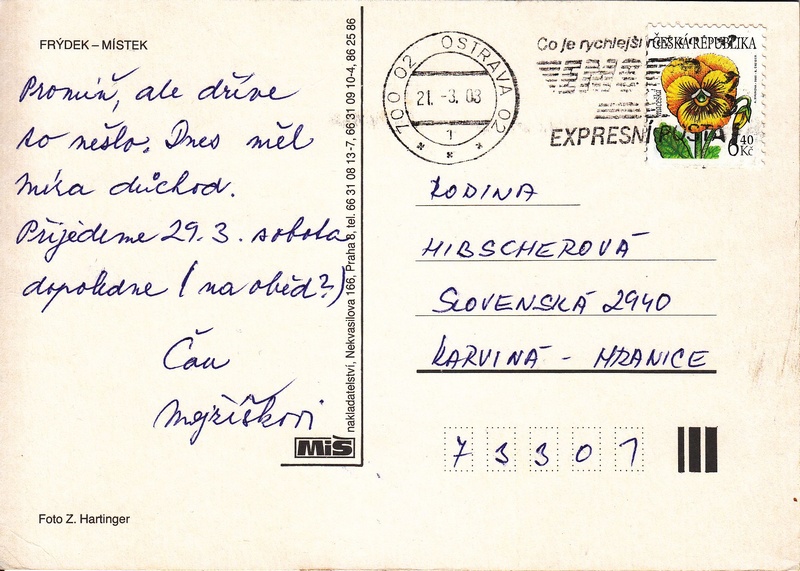 FRÝDEK – MÍSTEK
Promiň, ale dříve
to nešlo. Dnes měl
Míra důchod.
Přijedeme 29. 3. sobota
dopoledne (na oběd?)
Čau
nakladatelství, Nekvasilova 166, Praha 8, tel. 66 31 08 13-7, 66 31 09 10-4, 86 25 86
MiŠ
Foto Z. Hartinger
700 02 OSTRAVA 02
21. -3. 03
1
Co je rychlejší
EMS
EXPRESNÍ POŠTA
ČESKÁ REPUBLIKA
6 40
Kč
RODINA
HIBSCHEROVÁ
SLOVENSKÁ 2940
KARVINÁ - HRANICE
7 3 3 0 1